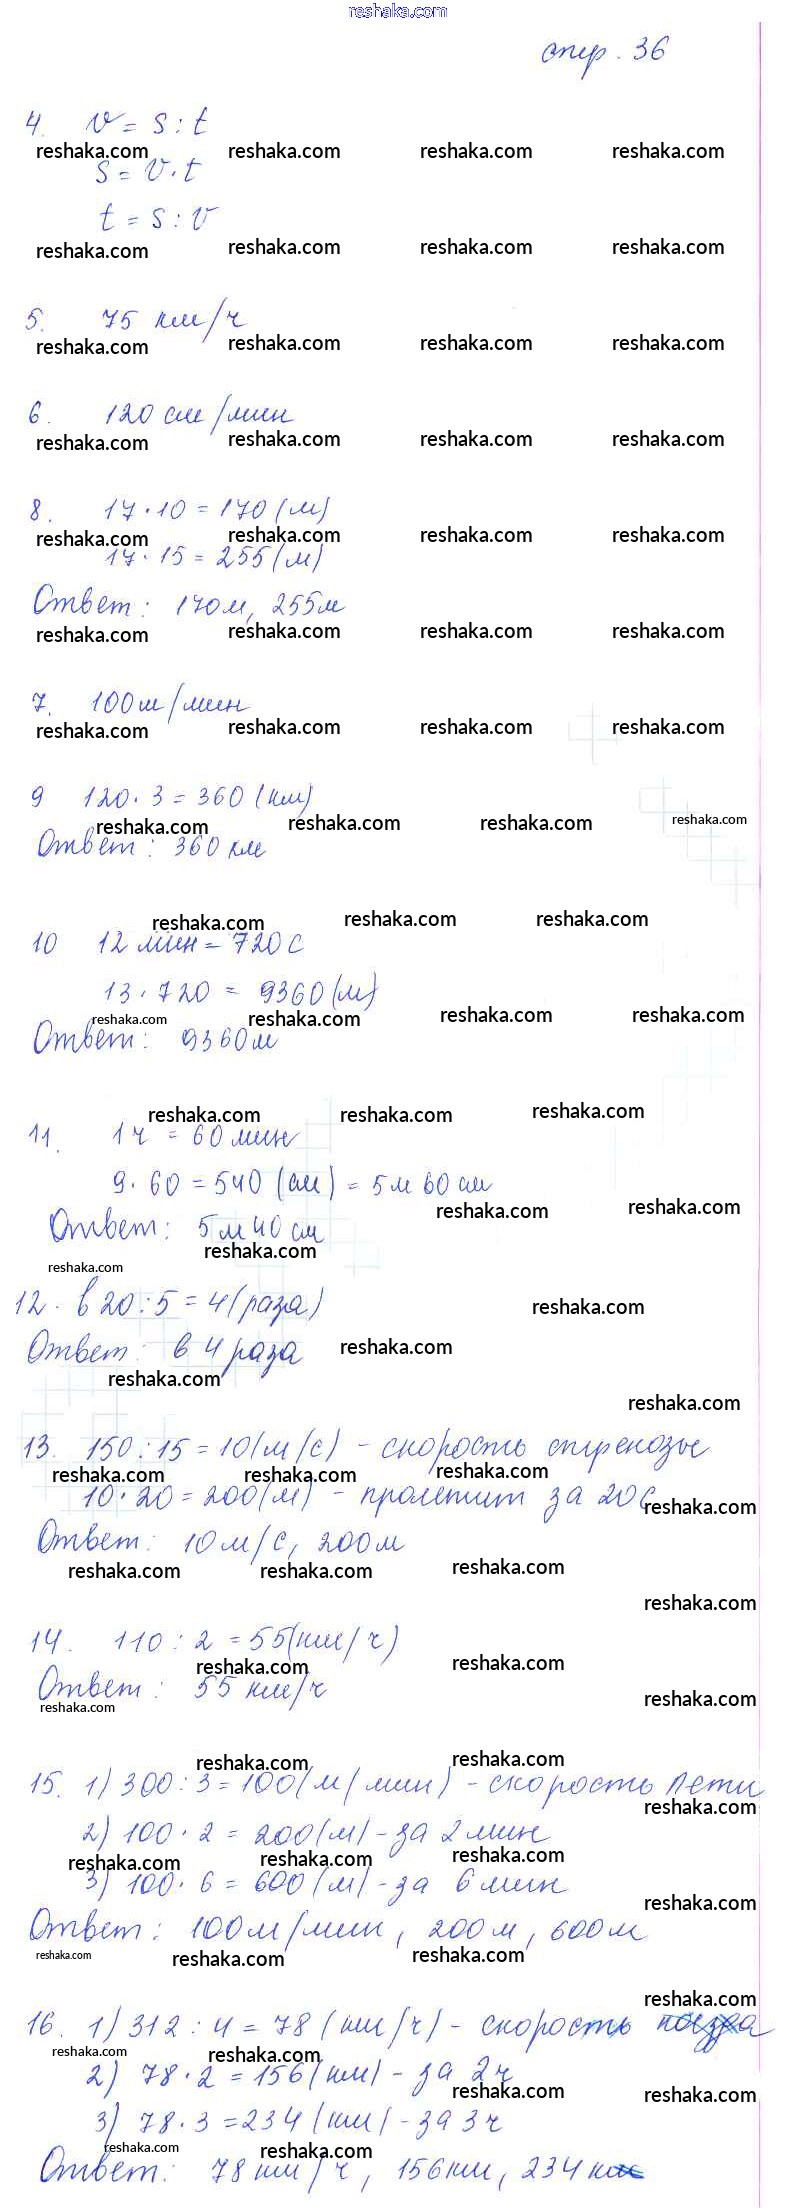 reshaka.com
стр. 36
4. v = s : t
reshaka.com reshaka.com reshaka.com reshaka.com
s = v · t
t = s : v
reshaka.com reshaka.com reshaka.com reshaka.com
5. 75 км/ч
reshaka.com reshaka.com reshaka.com reshaka.com
6. 120 см/мин
reshaka.com reshaka.com reshaka.com reshaka.com
8. 17 · 10 = 170 (м)
reshaka.com reshaka.com reshaka.com reshaka.com
17 · 15 = 255 (м)
Ответ: 170м, 255м
reshaka.com reshaka.com reshaka.com reshaka.com
7. 100м/мин
reshaka.com reshaka.com reshaka.com reshaka.com
9 120 · 3 = 360 (км)
reshaka.com reshaka.com reshaka.com reshaka.com
Ответ: 360 км
reshaka.com reshaka.com reshaka.com
10 12 мин = 720 с
13 · 720 = 9360 (м)
reshaka.com reshaka.com reshaka.com reshaka.com
Ответ: 9360м
reshaka.com reshaka.com reshaka.com
11. 1 ч = 60 мин
9 · 60 = 540 (см) = 5 м 60 см
reshaka.com reshaka.com
Ответ: 5 м 40 см
reshaka.com
reshaka.com
12. в 20 : 5 = 4 (раза)
reshaka.com
Ответ: в 4 раза
reshaka.com
reshaka.com
reshaka.com
13. 150 : 15 = 10 (м/с) - скорость стрекозы
reshaka.com reshaka.com reshaka.com
10 · 20 = 200 (м) - пролетит за 20 с
reshaka.com
Ответ: 10 м/с, 200м
reshaka.com reshaka.com reshaka.com
reshaka.com
14. 110 : 2 = 55 (км/ч)
reshaka.com reshaka.com
Ответ: 55 км/ч
reshaka.com reshaka.com
reshaka.com reshaka.com
15. 1) 300 : 3 = 100 (м/мин) - скорость Пети
reshaka.com
2) 100 · 2 = 200 (м) - за 2 мин
reshaka.com reshaka.com reshaka.com
3) 100 · 6 = 600 (м) - за 6 мин
reshaka.com
Ответ: 100м/мин, 200м, 600м
reshaka.com reshaka.com reshaka.com
reshaka.com
16. 1) 312 : 4 = 78 (км/ч) - скорость поезда
reshaka.com reshaka.com
2) 78 · 2 = 156 (км) - за 2 ч
reshaka.com reshaka.com
3) 78 · 3 = 234 (км) - за 3 ч
reshaka.com reshaka.com
Ответ: 78 км/ч, 156км, 234 км